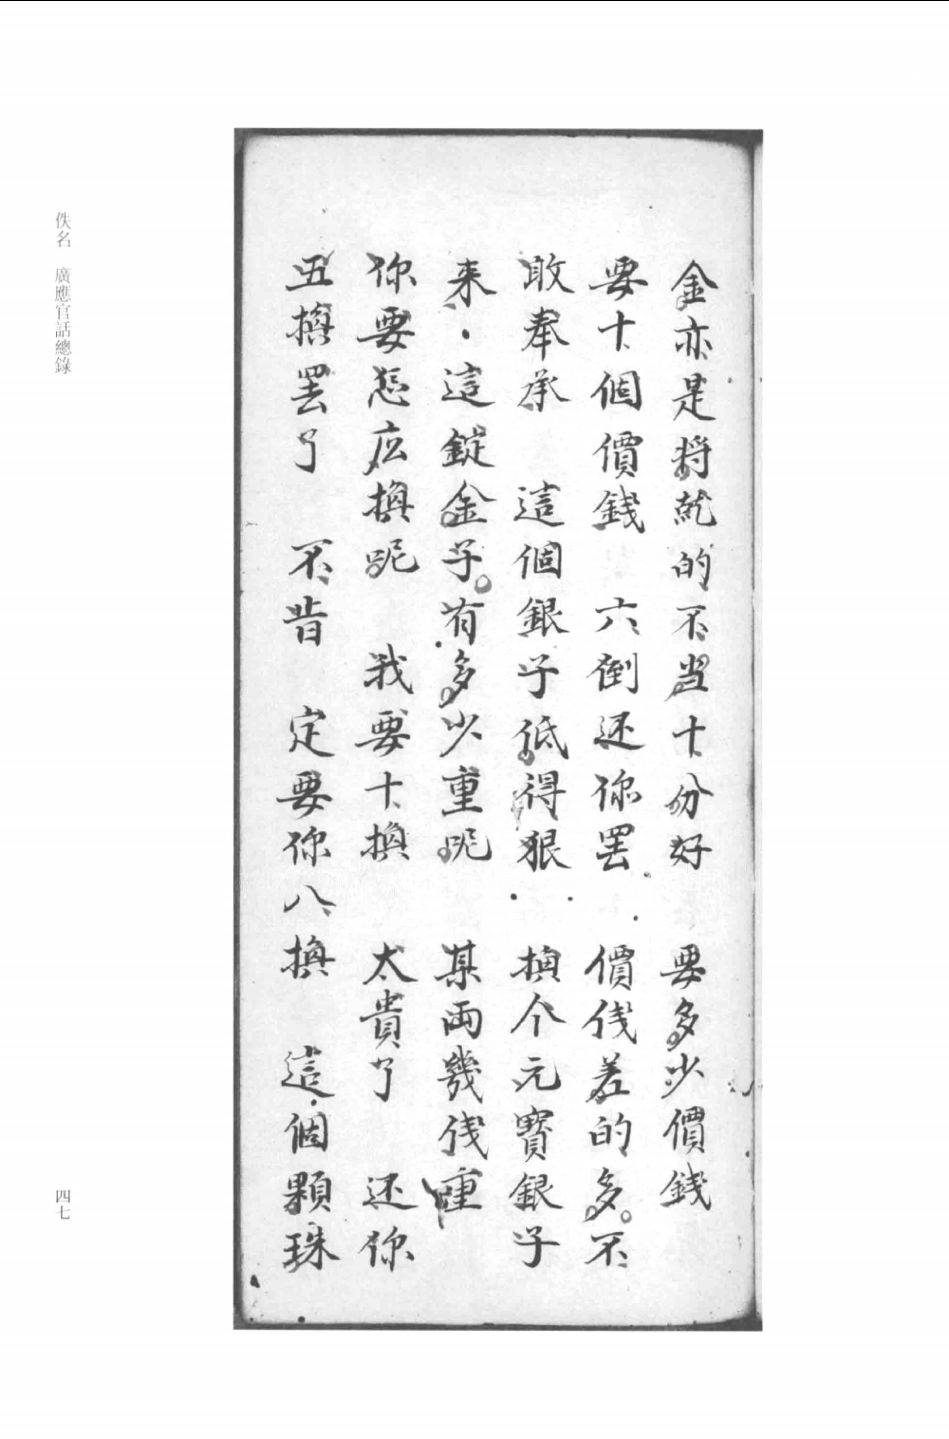 金亦是将就的不当十分好　要多少價錢
要十個價錢　六倒还你罢　價伐差的多不
敢奉承　這個銀子低得狠　換个元寳銀子
来這錠金子有多少重呢　某両幾伐重
你要怎庅換呢　我要十換　太貴了　还你
五換罢了　不肯　定要你八換　這個顆珠
佚名　廣應官話總錄
四七